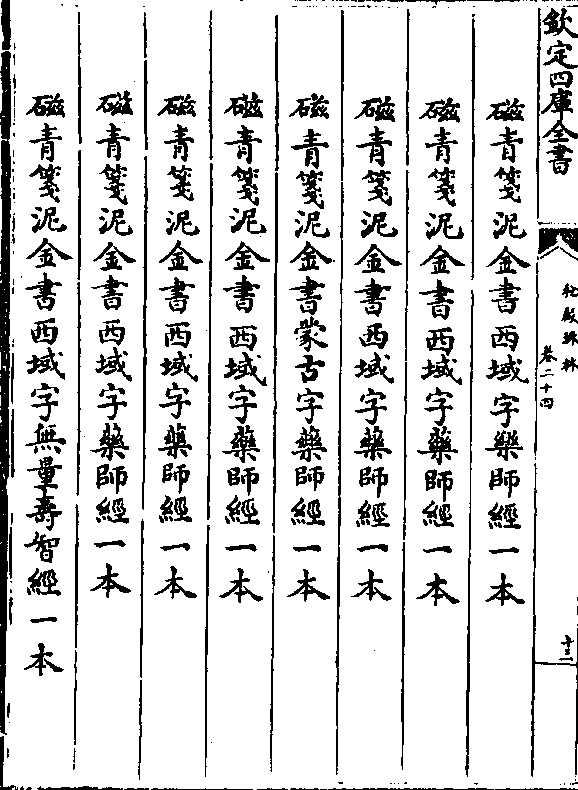 欽定四庫全書
秘殿珠林
卷二十四
十三
磁青箋泥金書西域字藥師經一本
磁青箋泥金書西域字藥師經一本
磁青箋泥金書西域字藥師經一本
磁青箋泥金書蒙古字藥師經一本
磁青箋泥金書西域字藥師經一本
磁青箋泥金書西域字藥師經一本
磁青箋泥金書西域字藥師經一本
磁青箋泥金書西域字無量壽智經一本